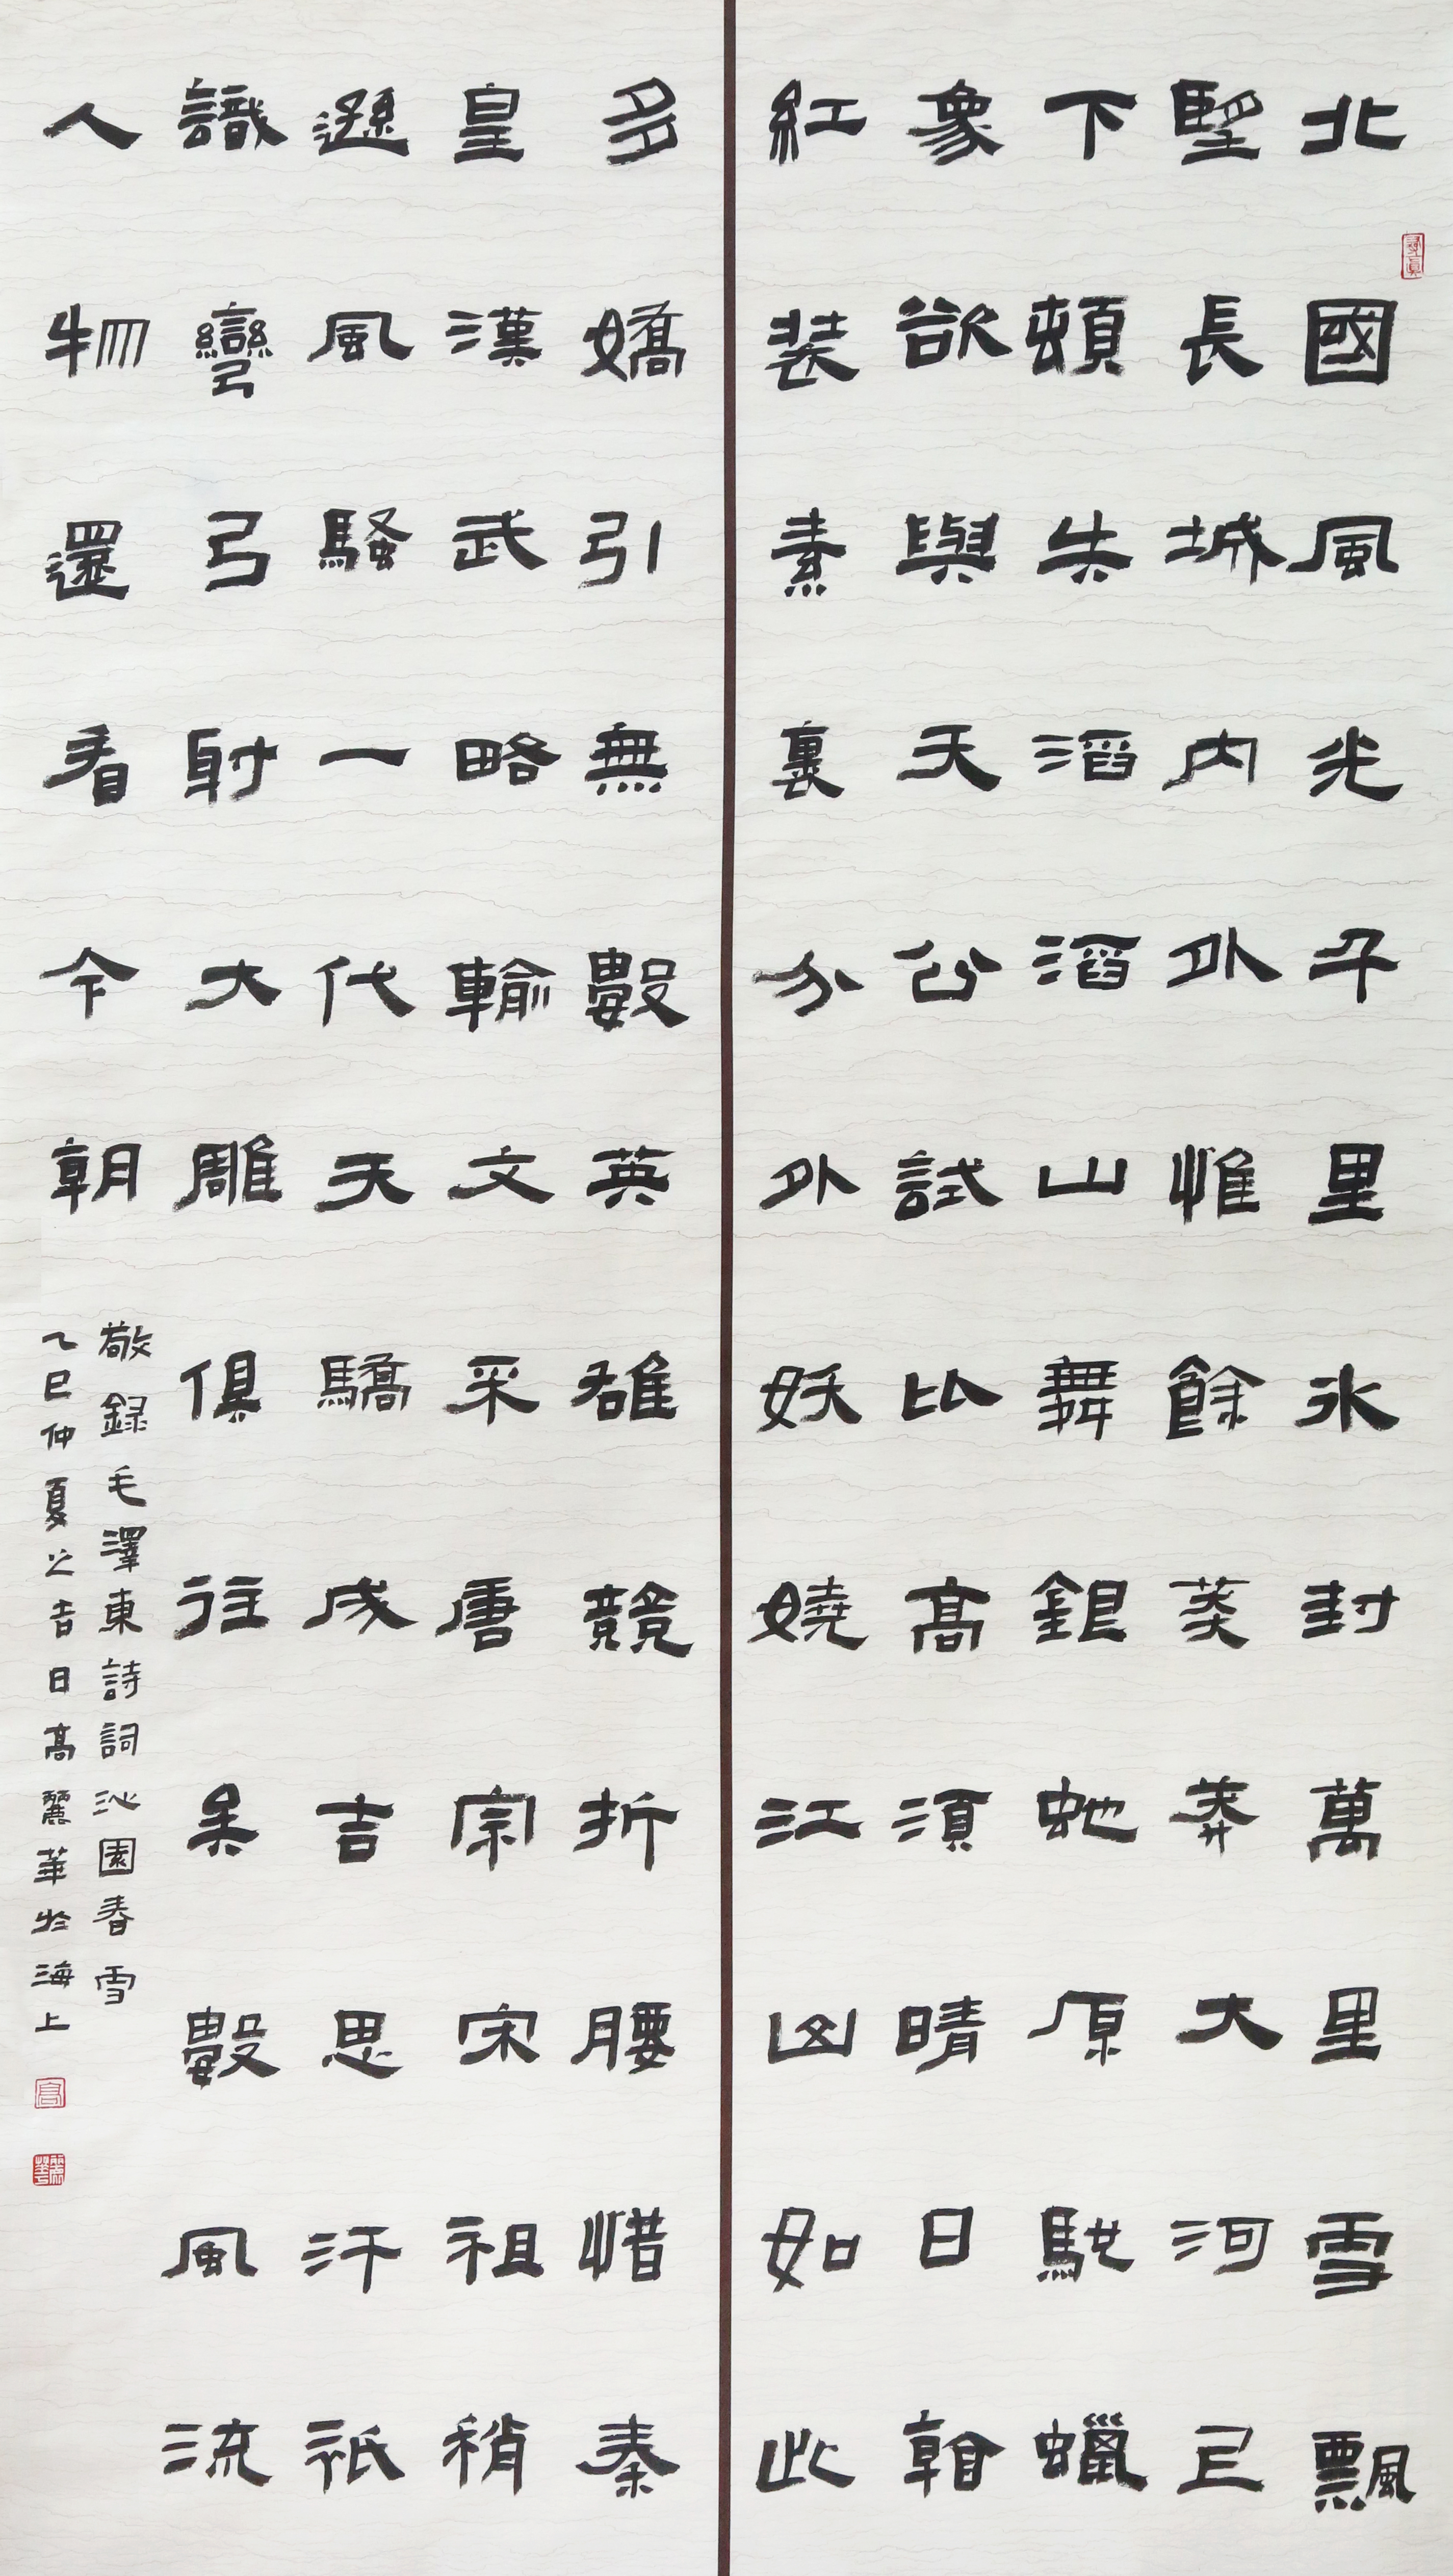 北國風光千里冰封萬里雪飄
望長城內外惟餘莽莽大河上
下頓失滔滔山舞銀蛇原馳蠟
象欲與天公試比高須晴日看
紅裝素裹分外妖嬈江山如此
多嬌引無數英雄競折腰惜秦
皇漢武略輸文采唐宗宋祖稍
遜風騷一代天驕成吉思汗祇
識彎弓射大雕俱往矣數風流
人物還看今朝
敬錄毛澤東詩詞沁園春雪
乙巳仲夏之吉日高麗華於海上
高
麗華